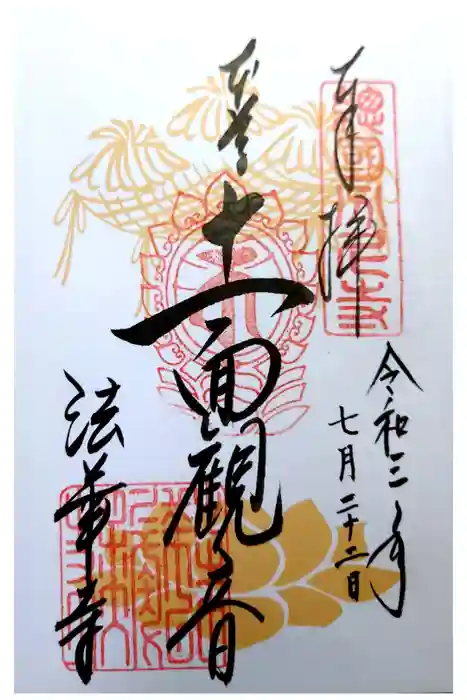 奉拝
令和三年
七月二十二日
本尊
十一面観音
法華寺